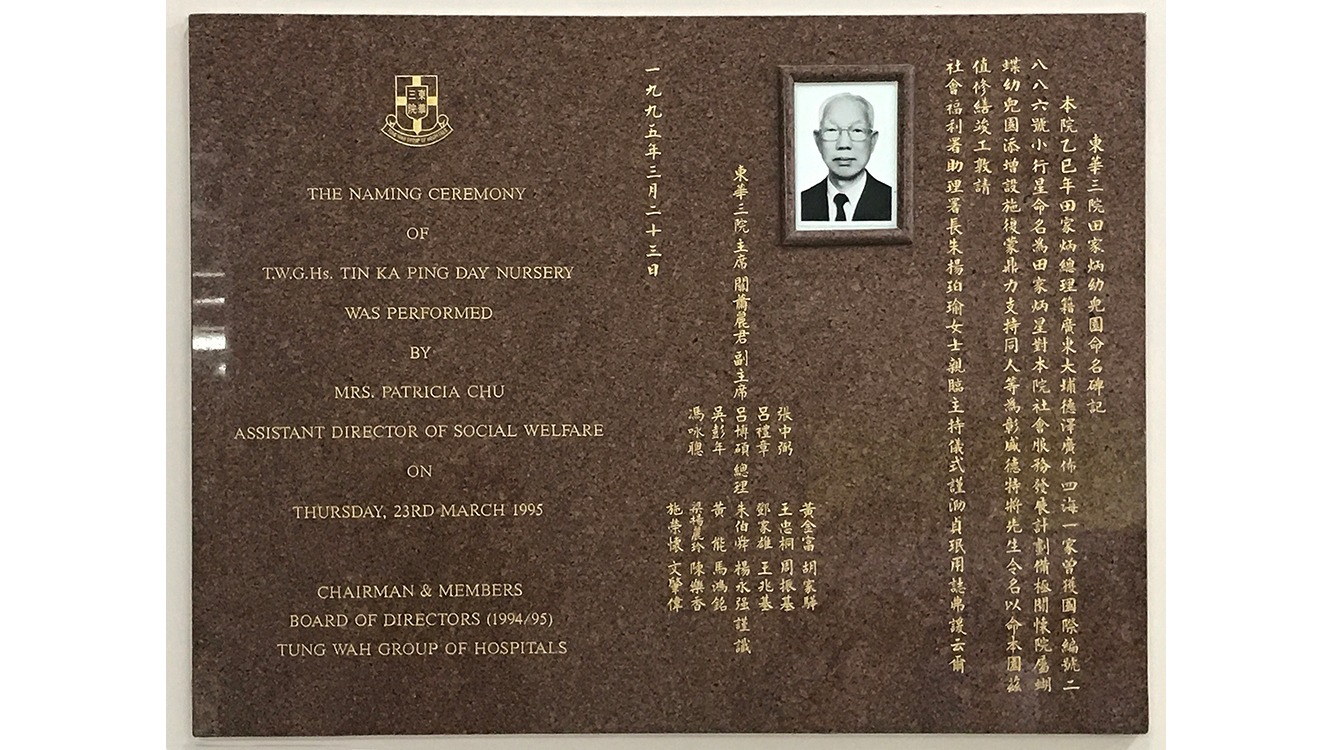 東華三院
TUNG WAH GROUP OF HOSPITALS
THE NAMING CEREMONY
OF
T.W.G.Hs. TIN KA PING DAY NURSERY
WAS PERFORMED
BY
MRS. PATRICIA CHU
ASSISTANT DIRECTOR OF SOCIAL WELFARE
ON
THURSDAY, 23RD MARCH 1995
CHAIRMAN & MEMBERS
BOARD OF DIRECTORS (1994/95)
TUNG WAH GROUP OF HOSPITALS
東華三院田家炳幼兒園命名碑記
本院乙巳年田家炳總理籍廣東大埔德澤廣佈四海一家曾獲國際編號二
八八六號小行星命名為田家炳星對本院社會服務發展計劃備極關懷院屬蝴
蝶幼兒園添增設施復蒙鼎力支持同人等為彰盛德特將先生令名以命本園茲
值修繕竣工敦請
社會福利署助理署長朱楊珀瑜女士親臨主持儀式謹泐貞珉用誌弗諼云爾
東華三院主席關蕭麗君副主席
張中弼
呂禮章
呂博碩
吳彭年
馮咏聰
總理
黃金富 胡家驊
王忠桐 周振基
鄧家雄 王兆基
朱伯舜 楊永强
黃 能 馬鴻銘
梁楊麗玲 陳樂香
施榮懷 文肇偉
謹識
一九九五年三月二十三日